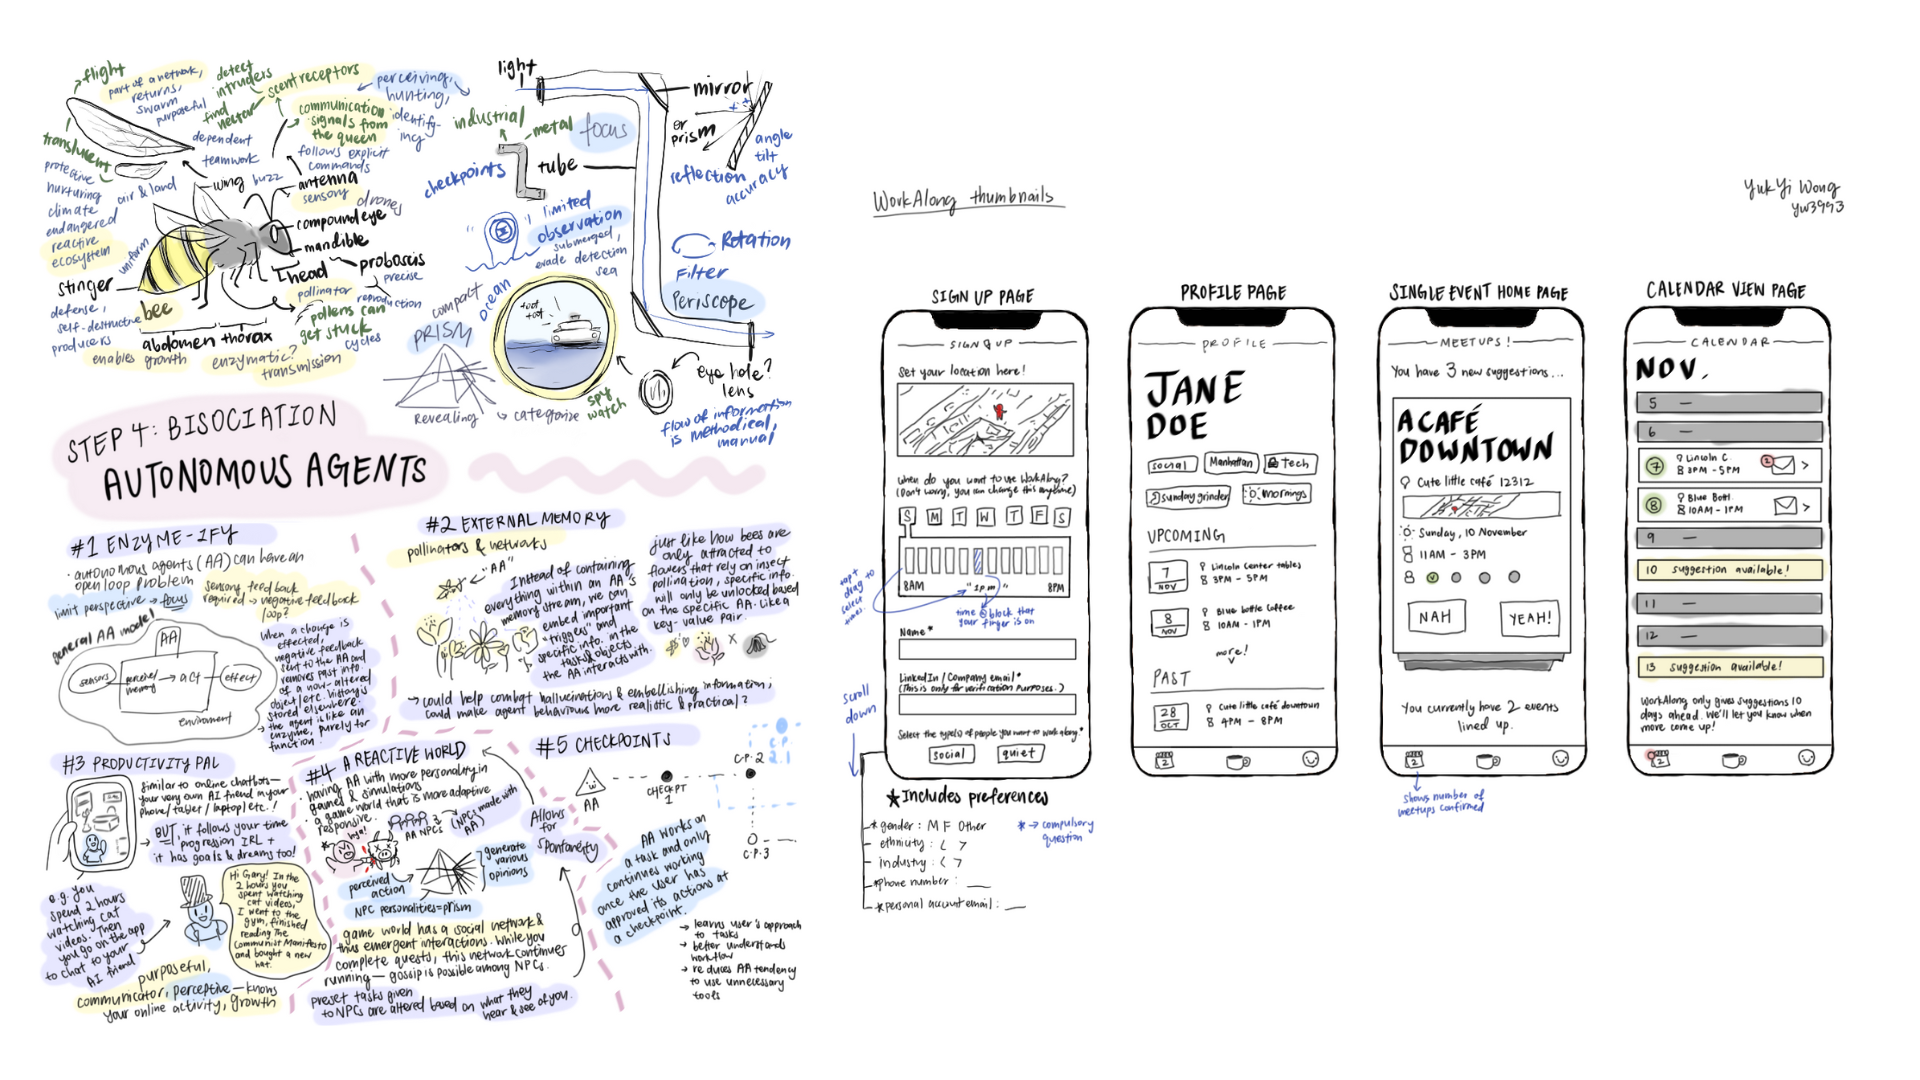 flight
part of a network,
returns,
swarm
purposeful
detect
intruders
find
nectar
scent receptors
communication
signals from
the queen
perceiving,
hunting,
identify-
ing
translucent
dependent
teamwork
follows explicit
commands
protective
nurturing
climate
endangered
reactive
ecosystem
air & land
uniform
wing
buzz
antenna
sensory
drones
compound eye
mandible
head
proboscis
precise
pollinator
reproduction
pollens can
get stuck
cycles
stinger
defense,
self-destructive
producers
bee
abdomen
thorax
enables growth
enzymatic?
transmission
light
mirror
or
prism
angle
tilt
accuracy
reflection
industrial
metal
focus
checkpoints
tube
limited
observation
submerged,
evade detection
sea
Rotation
Filter
Periscope
ocean
compact
PRISM
Revealing
categorize
toot
toot
spy
watch
eye hole?
lens
flow of information
is methodical,
manual
STEP 4: BISOCIATION
AUTONOMOUS AGENTS
#1 ENZYME-IFY
· autonomous agents (AA) can have an
open loop problem
sensory feedback
required → negative feedback
loop?
limit perspective → focus
general AA model
AA
sensors
perceive
memory
→ act
effect
environment
when a change is
effected,
negative feedback
sent to the AA and
removes past info
of a now-altered
object/etc. history is
stored elsewhere.
the agent is like an
enzyme, purely for
function.
#2 EXTERNAL MEMORY
pollinators & networks
"AA"
Instead of containing
everything within an AA's
memory stream, we can
embed important
"triggers" and
specific info. in the
tasks/objects
the AA interacts with.
just like how bees are
only attracted to
flowers that rely on insect
pollination, specific info.
will only be unlocked based
on the specific AA. Like a
key-value pair.
x
→ could help combat hallucinations & embellishing information;
could make agent behaviours more realistic & practical?
#3 PRODUCTIVITY PAL
similar to online chatbots—
your very own AI friend in your
phone/tablet/laptop/etc.!
BUT, it follows your time
progression IRL +
it has goals & dreams too!
e.g. you
spend 2 hours
watching cat
videos. Then
you go on the app
to chat to your
AI friend
Hi Gary! In the
2 hours you
spent watching
cat videos,
I went to the
gym, finished
reading The
Communist Manifesto
and bought a new
hat.
purposeful,
communicator, perceptive — knows
your online activity, growth
#4 A REACTIVE WORLD
· having AA with more personality in
games & simulations
· a game world that is more adaptive
responsive.
AA NPCs
(NPCs made with
AA)
hya!
perceived
action
generate
various
opinions
NPC personalities = prism
game world has a social network &
thus emergent interactions. While you
complete quests, this network continues
running — gossip is possible among NPCs.
preset tasks given
to NPCs are altered based on what they
hear & see of you.
Allows
for
spontaneity
#5 CHECKPOINTS
AA
CHECKPT
1
C.P. 2
C.P.
2.1
C.P. 3
AA works on
a task and only
continues working
once the user has
approved its actions at
a checkpoint.
→ learns user's approach
to tasks
→ better understands
workflow
→ reduces AA tendency
to use unnecessary
tools
WorkAlong thumbnails
YukYi Wong
yw3993
SIGN UP PAGE
SIGN UP
Set your location here!
When do you want to use WorkAlong?
(Don't worry, you can change this anytime)
S M T W T F S
8AM
"1pm"
8PM
tap +
drag to
select
times.
time @ block that
your finger is on
Name*
LinkedIn / Company email*
(This is only for verification purposes.)
Select the type(s) of people you want to work along.*
social
quiet
scroll
down
★ Includes preferences
* gender : M F Other
ethnicity : < >
industry : < >
*phone number : __
*personal account email : __
* → compulsory
question
PROFILE PAGE
PROFILE
JANE
DOE
social
Manhattan
Tech
sunday grinder
mornings
UPCOMING
7
NOV
Lincoln Center tables
3PM - 5PM
8
NOV
Blue bottle Coffee
10AM - 1PM
more!
PAST
28
OCT
Cute little café downtown
4PM - 8PM
2
SINGLE EVENT HOME PAGE
MEETUPS!
You have 3 new suggestions...
A CAFÉ
DOWNTOWN
Cute little café 12312
Sunday, 10 November
11AM - 3PM
NAH
YEAH!
You currently have 2 events
lined up.
2
shows number of
meetups confirmed
CALENDAR VIEW PAGE
CALENDAR
NOV.
5 —
6 —
7
Lincoln C.
3PM - 5PM
>
8
Blue Bott.
10AM - 1PM
>
9 —
10 suggestion available!
11 —
12 —
13 suggestion available!
WorkAlong only gives suggestions 10
days ahead. We'll let you know when
more come up!
2